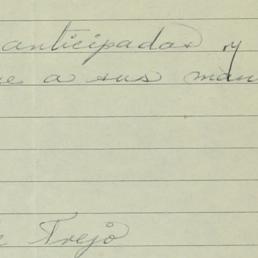 anticipadas y
e a sus man
e Trejo